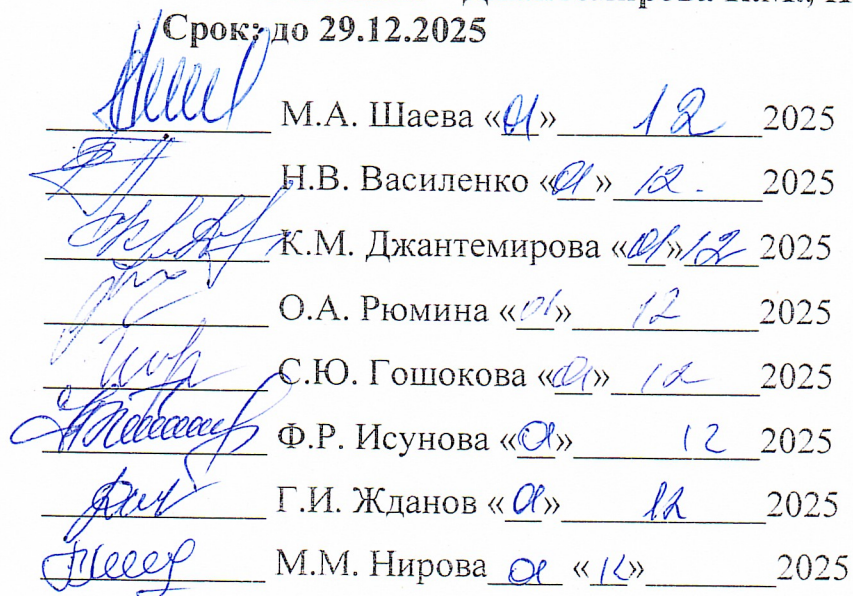 Срок: до 29.12.2025
М.А. Шаева «01» 12 2025
Н.В. Василенко «01» 12. 2025
К.М. Джантемирова «01» 12 2025
О.А. Рюмина «01» 12 2025
С.Ю. Гошокова «01» 12 2025
Ф.Р. Исунова «01» 12 2025
Г.И. Жданов «01» 12 2025
М.М. Нирова 01 «12» 2025